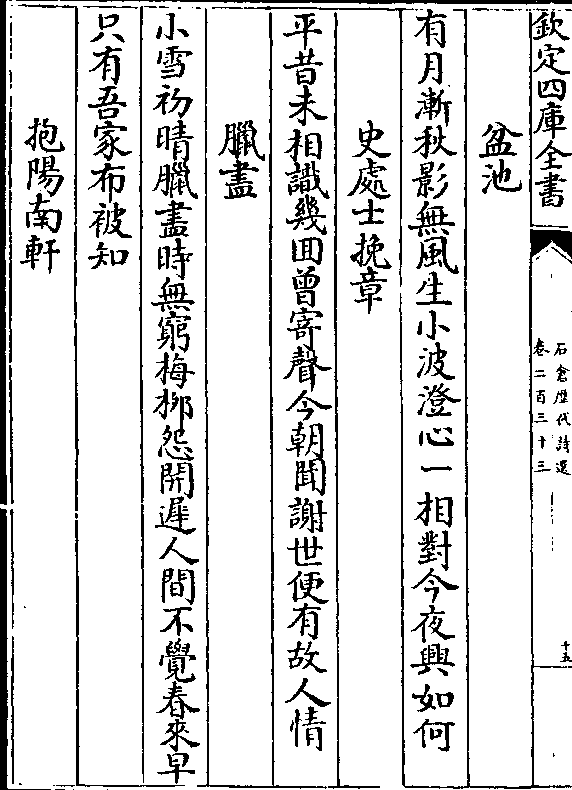 欽定四庫全書
石倉歷代詩選
卷二百三十三
十五
盆池
有月漸秋影無風生小波澄心一相對今夜興如何
史處士挽章
平昔未相識幾回曾寄聲今朝聞謝世便有故人情
臘盡
小雪初晴臘盡時無窮梅栁怨開遲人間不覺春來早
只有吾家布被知
抱陽南軒